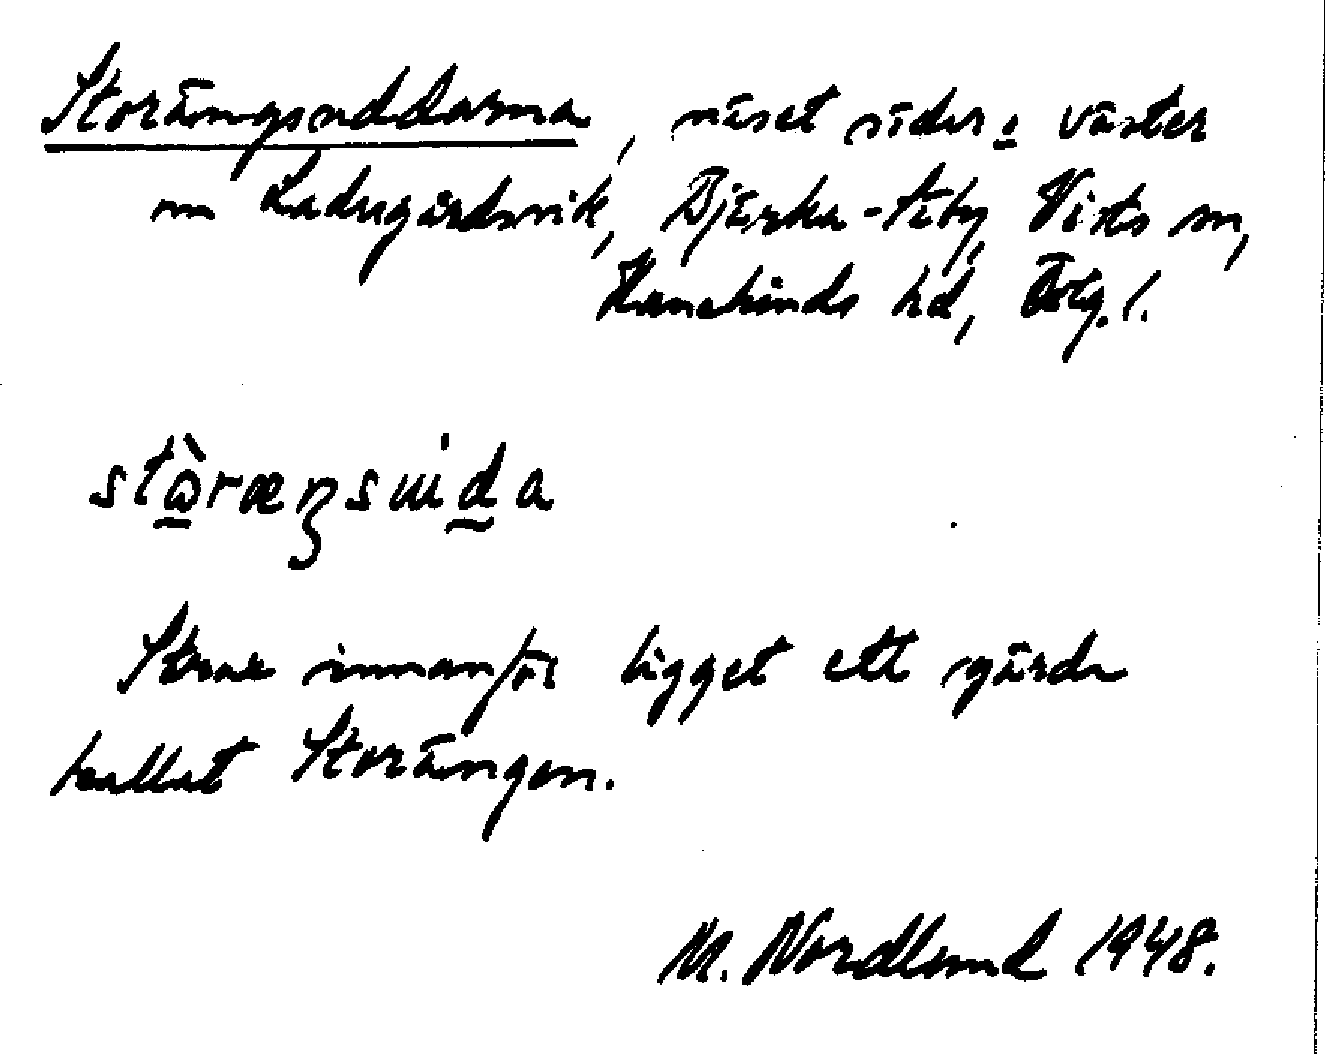 Storängsuddarna, näset söder o väster
om Ladugårdsvik, Bjärka-Säby, Vists sn,
Hanekinds hd, Östg. l.
stὼræŋsuda
Strax innanför ligger ett gärde
kallat Storängen.
M. Nordlund 1948.